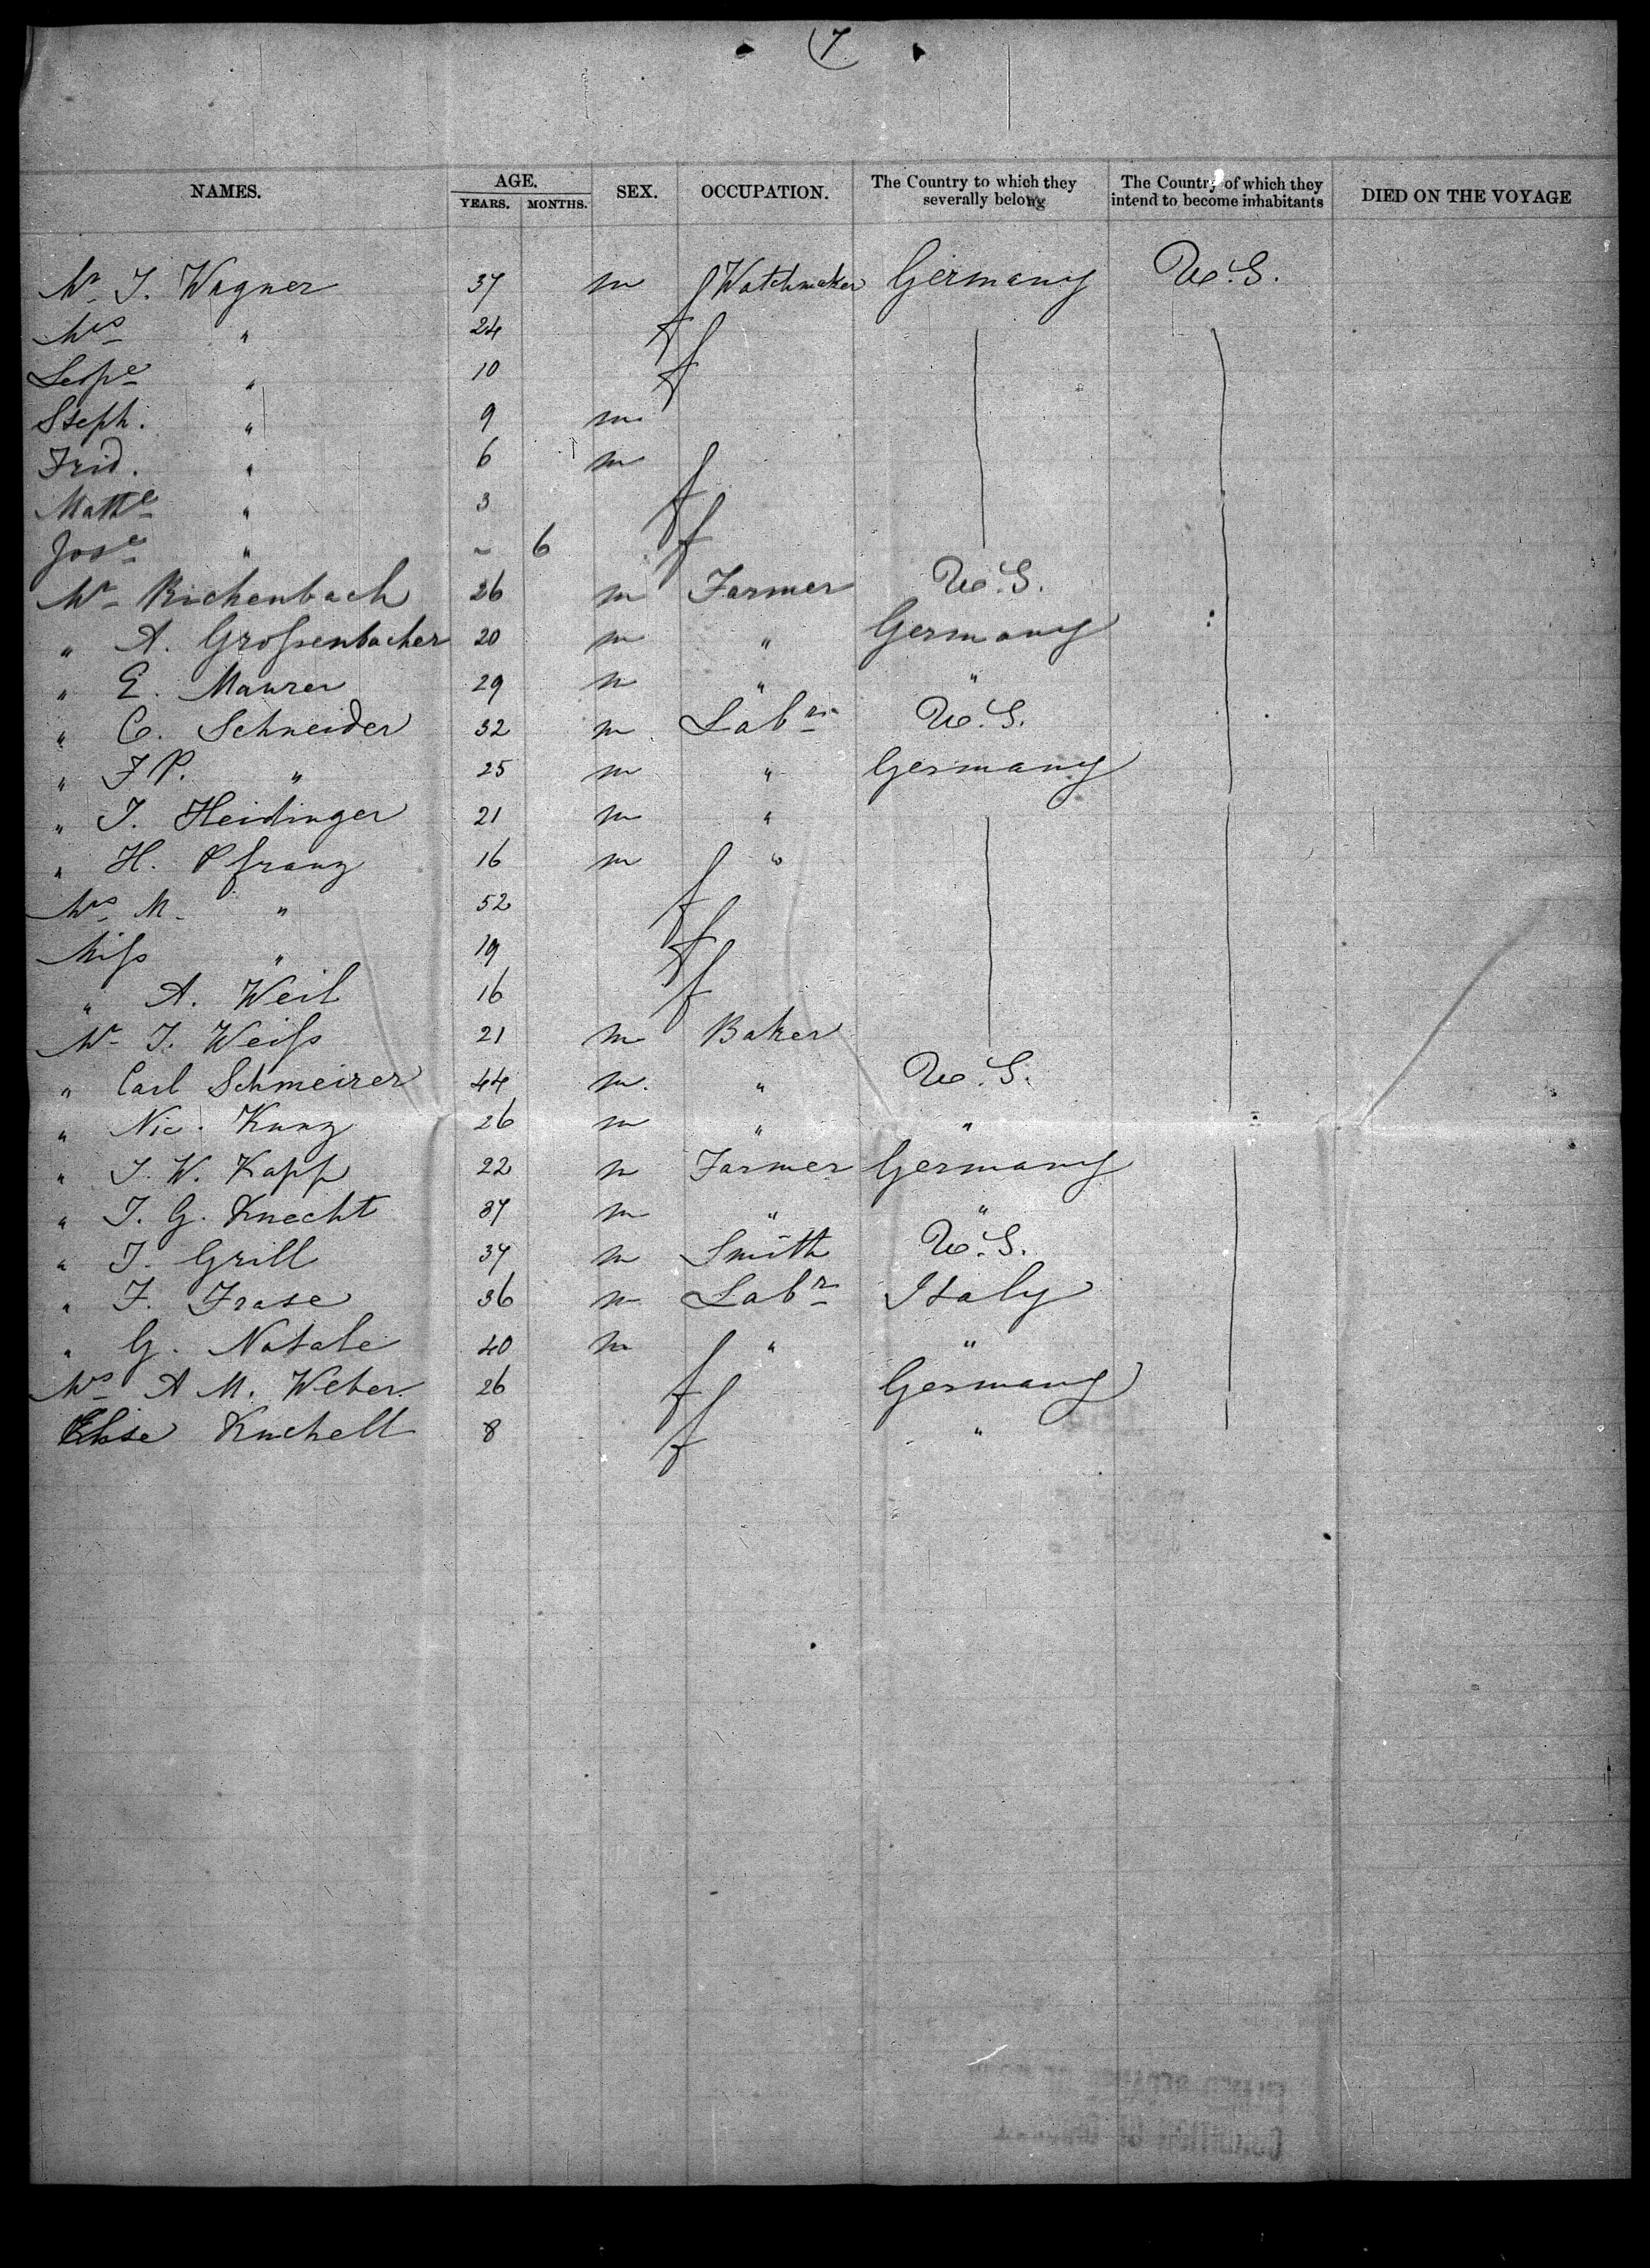 (7
NAMES. AGE. SEX. OCCUPATION. The Country to which they severally belong The Country of which they intend to become inhabitants DIED ON THE VOYAGE
YEARS. MONTHS.
Mr J. Wagner 37 m Watchmaker Germany U.S.
Mrs " 24 f
" 10 f
Steph. " 9 m
Frid. " 6 m
Mathe " 3 f
Jose " ~ 6 f
Mr Richenbach 26 m Farmer U.S.
" A. Großenbacher 20 m " Germany
" E. Maurer 29 m " "
" C. Schneider 32 m Labr U.S.
" F P. " 25 m " Germany
" J. Heidinger 21 m "
" H. Pfranz 16 m "
Mrs M. " 52 f
Miſs " 19 f
" A. Weil 16 f
Mr J. Weiſs 21 m Baker
" Carl Schmeirer 44 m. " U.S.
" Nic. Kunz 26 m " "
" J. W. Kapp 22 m Farmer Germany
" J. G. Knecht 37 m " "
" J. Grill 37 m Smith U.S.
" F. Frase 36 m Labr Italy
" G. Natale 40 m " "
Mrs A M. Weber 26 f Germany
Elise Knchell 8 f "